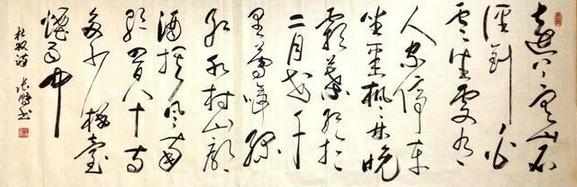 遠上寒山石
徑斜白
雲生處有
人家停車
坐愛楓林晚
霜葉紅於
二月花千
里鶯啼綠
紅水村山郭
酒旗風南
朝四百八十寺
多少樓臺
煙雨中
杜牧詩